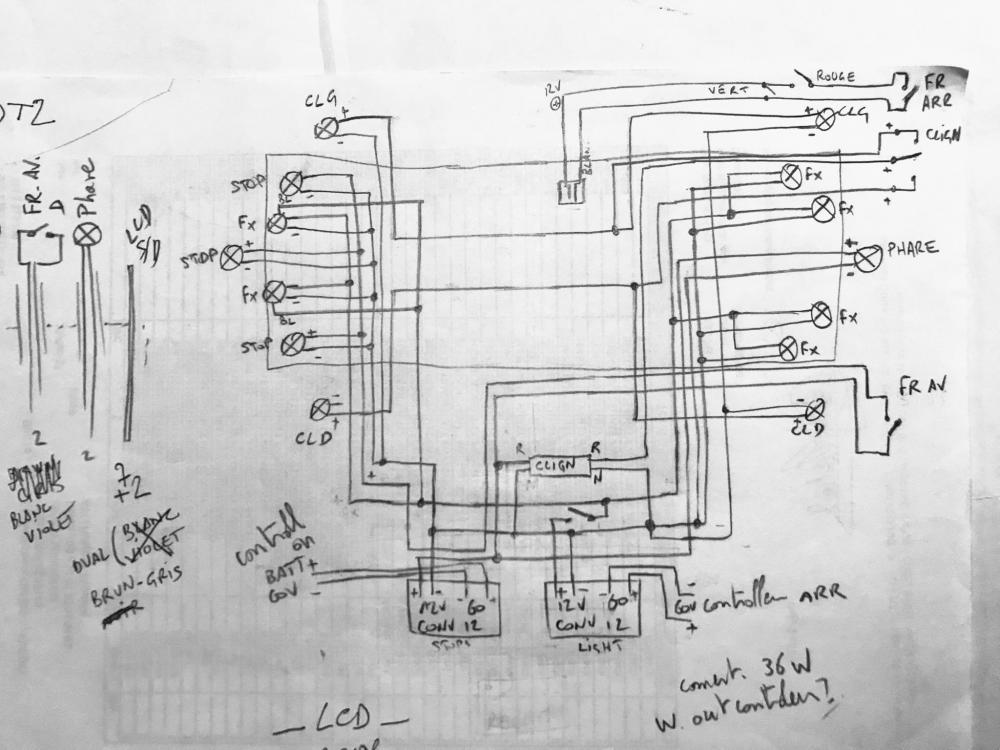 DT2
FR. AV.
D
Phare
LCD
S/D
2
BLANC
VIOLET
2
7
+2
DUAL (BLANC
VIOLET
BRUN-GRIS
CLG
+
-
STOP
-
BL
Fx
-
STOP
+
-
Fx
-
BL
STOP
+
-
-
+
CLD
12V
+
BLAN.
VERT
ROUGE
FR
ARR
+
-
CLG
+
CLIGN
+
+
Fx
Fx
+
-
PHARE
Fx
Fx
FR AV
-
+
CLD
R
CLIGN
R
N
N
+
controll
on
BATT +
60V -
+ - - +
12V 60
CONV 12
STOPS
+ - - +
12V 60
CONV 12
LIGHT
-
60V controller ARR
+
convert. 36 W
W. out controllers?
_ LCD _